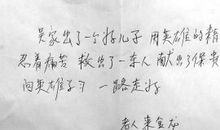 吴家出了一个好儿子 用英雄的精
忍着痛苦 救出了一车人 献出了保贵
向英雄学习 一路走好
老人 来金龙